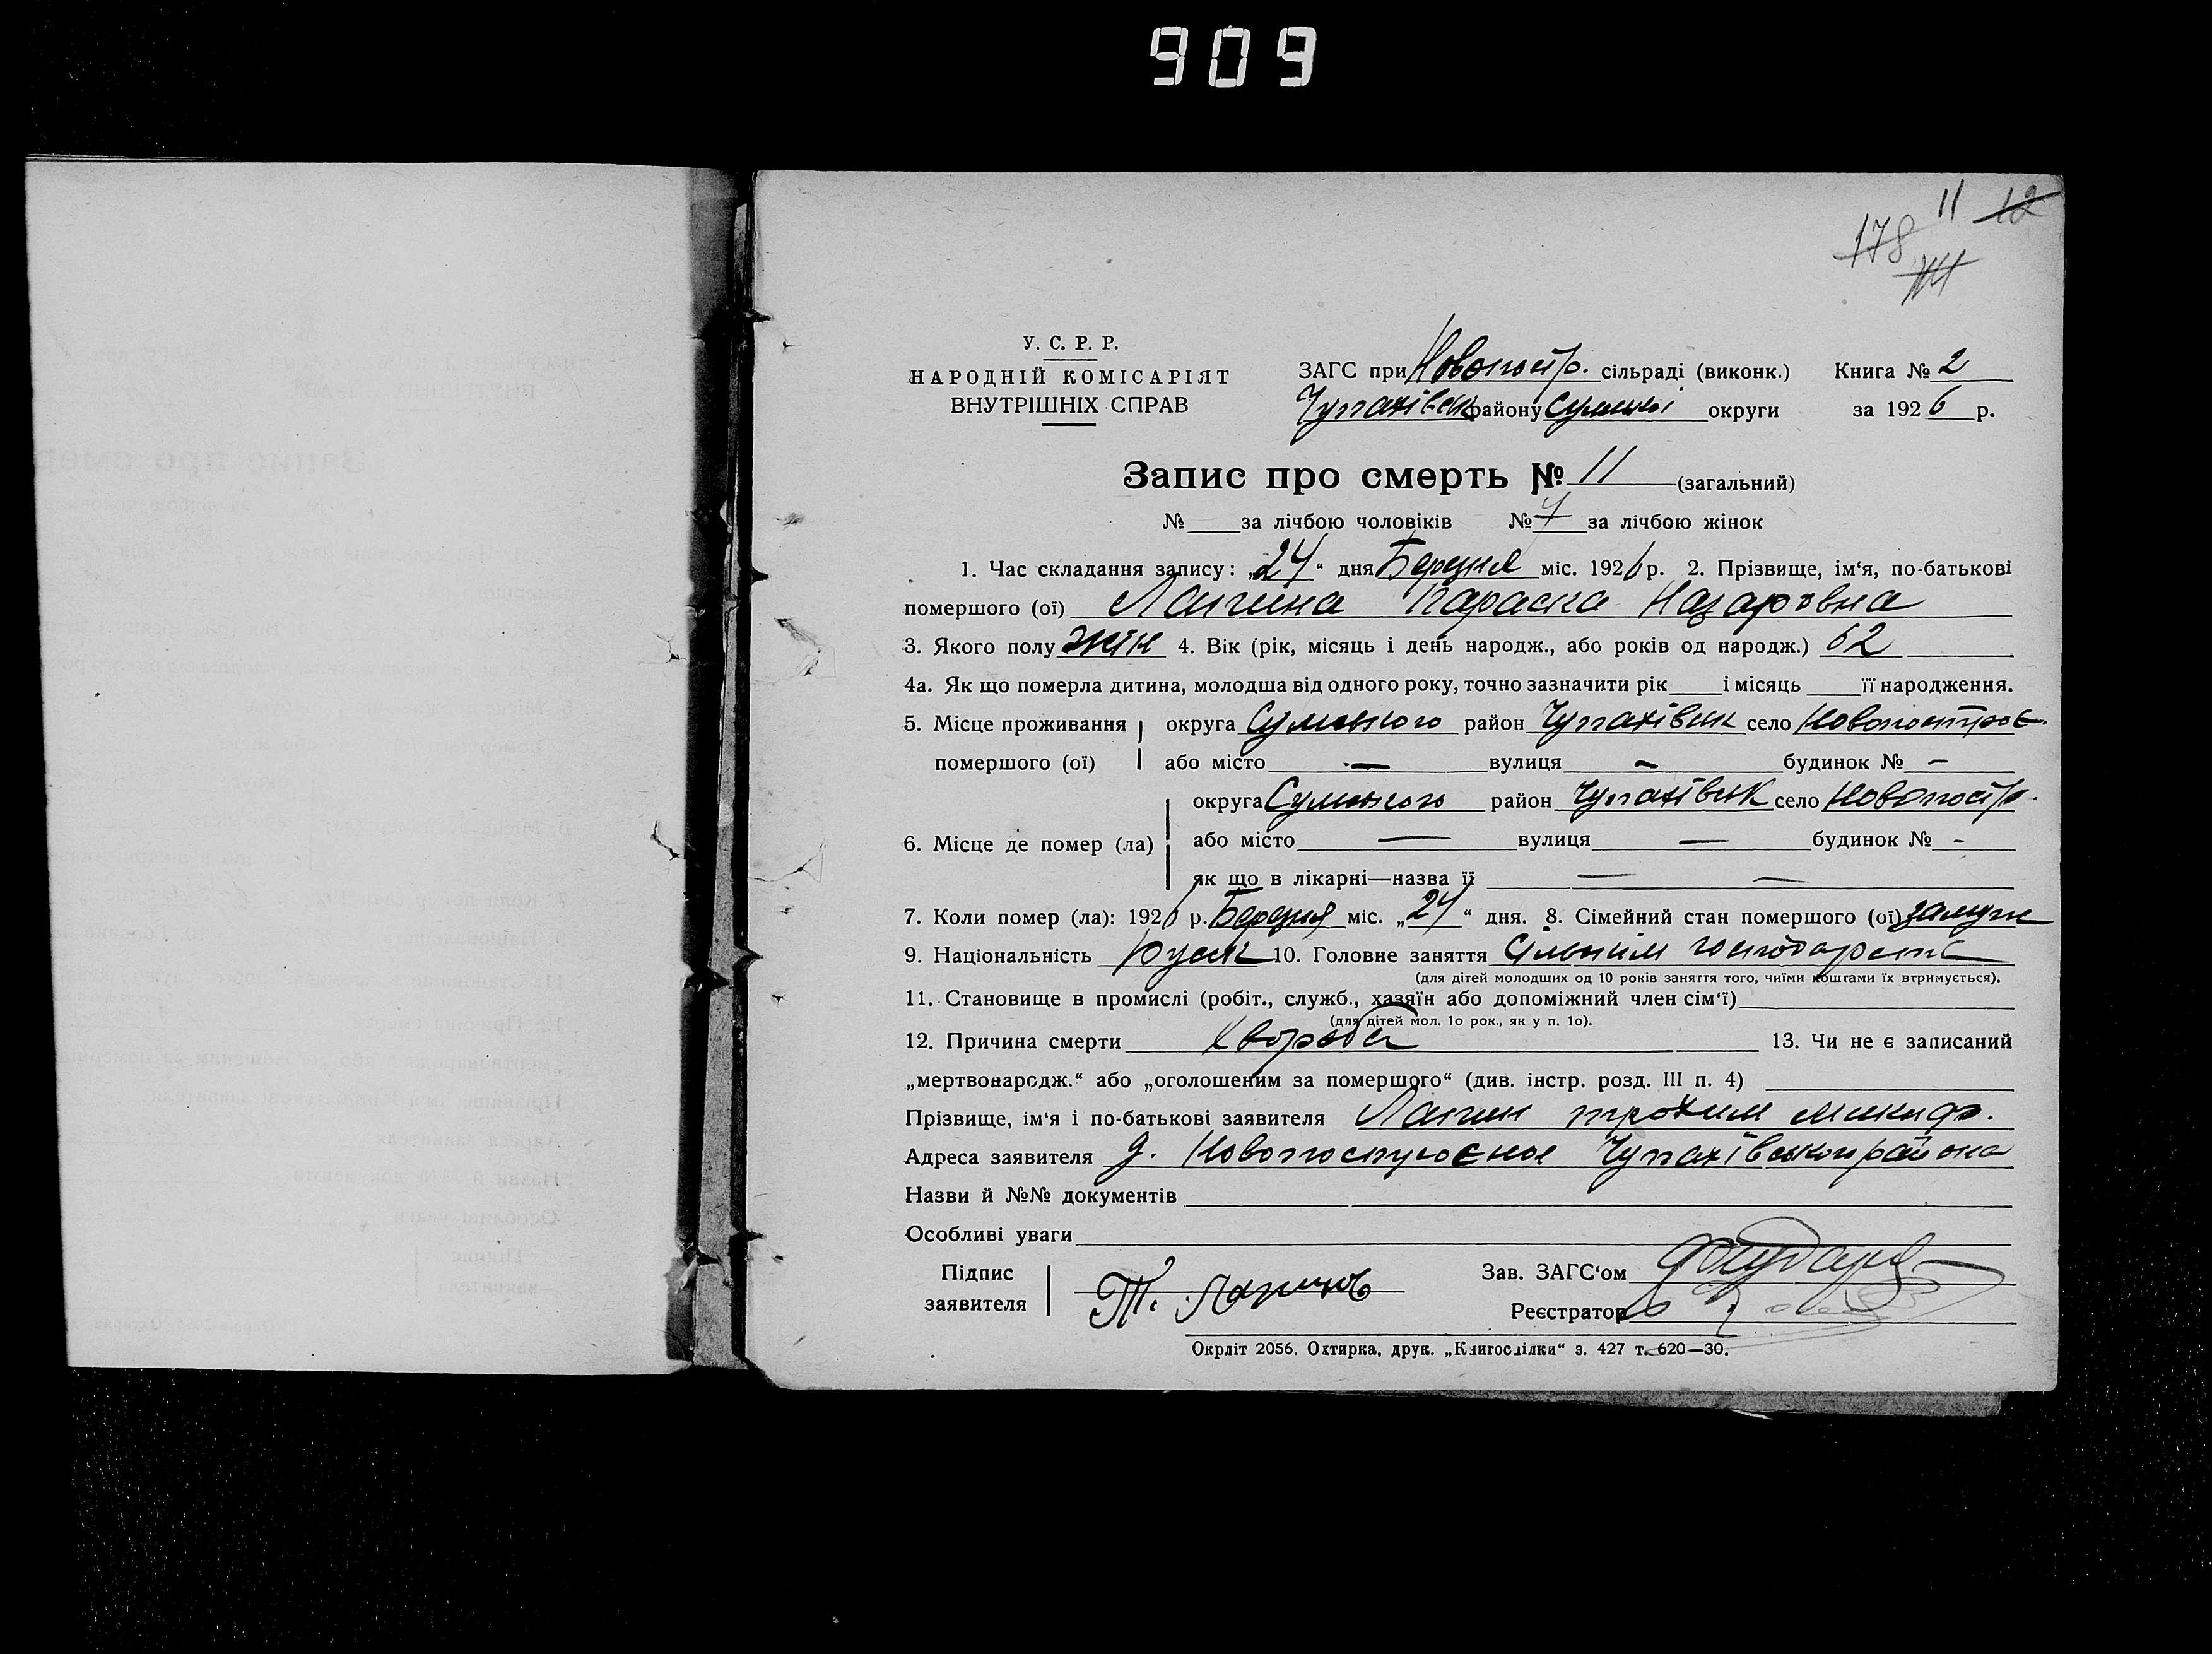 909
11 12
178
У. С. Р. Р.
НАРОДНІЙ КОМІСАРІЯТ
ВНУТРІШНІХ СПРАВ
ЗАГС при Новопостр. сільраді (виконк.) Книга № 2
Чупахівськ району Сумської округи за 1926 р.
Запис про смерть № 11 (загальний)
№ за лічбою чоловіків № 4 за лічбою жінок
1. Час складання запису: „24“ дня Березня міс. 1926 р. 2. Прізвище, ім‘я, по-батькові
помершого (ої) Лапина Параска Назаровна
3. Якого полу жін 4. Вік (рік, місяць і день народж., або років од народж.) 62
4а. Як що померла дитина, молодша від одного року, точно зазначити рік і місяць її народження.
5. Місце проживання округа Сумського район Чупахівськ село Новопостроє
помершого (ої) або місто — вулиця — будинок № –
округа Сумського район Чупахівськ село Новопостр.
6. Місце де помер (ла) або місто — вулиця — будинок № –
як що в лікарні—назва її — —
7. Коли помер (ла): 1926 р. Березня міс. „24“ дня. 8. Сімейний стан помершого (ої) замуж
9. Національність Руськ 10. Головне заняття Сільским господарств
(для дітей молодших од 10 років заняття того, чиїми коштами їх втримується).
11. Становище в промислі (робіт., служб., хазяїн або допоміжний член сім‘ї)
(для дітей мол. 1о рок., як у п. 1о).
12. Причина смерти хвороба 13. Чи не є записаний
„мертвонародж.“ або „оголошеним за помершого“ (див. інстр. розд. III п. 4)
Прізвище, ім‘я і по-батькові заявителя Лапин трохим
Адреса заявителя д. Новопостроєное Чупахівського района
Назви й №№ документів
Особливі уваги
Підпис Зав. ЗАГС‘ом
заявителя Т. Лапинов Реєстратор
Окрліт 2056. Охтирка, друк. „Книгоспілки“ з. 427 т. 620—30.